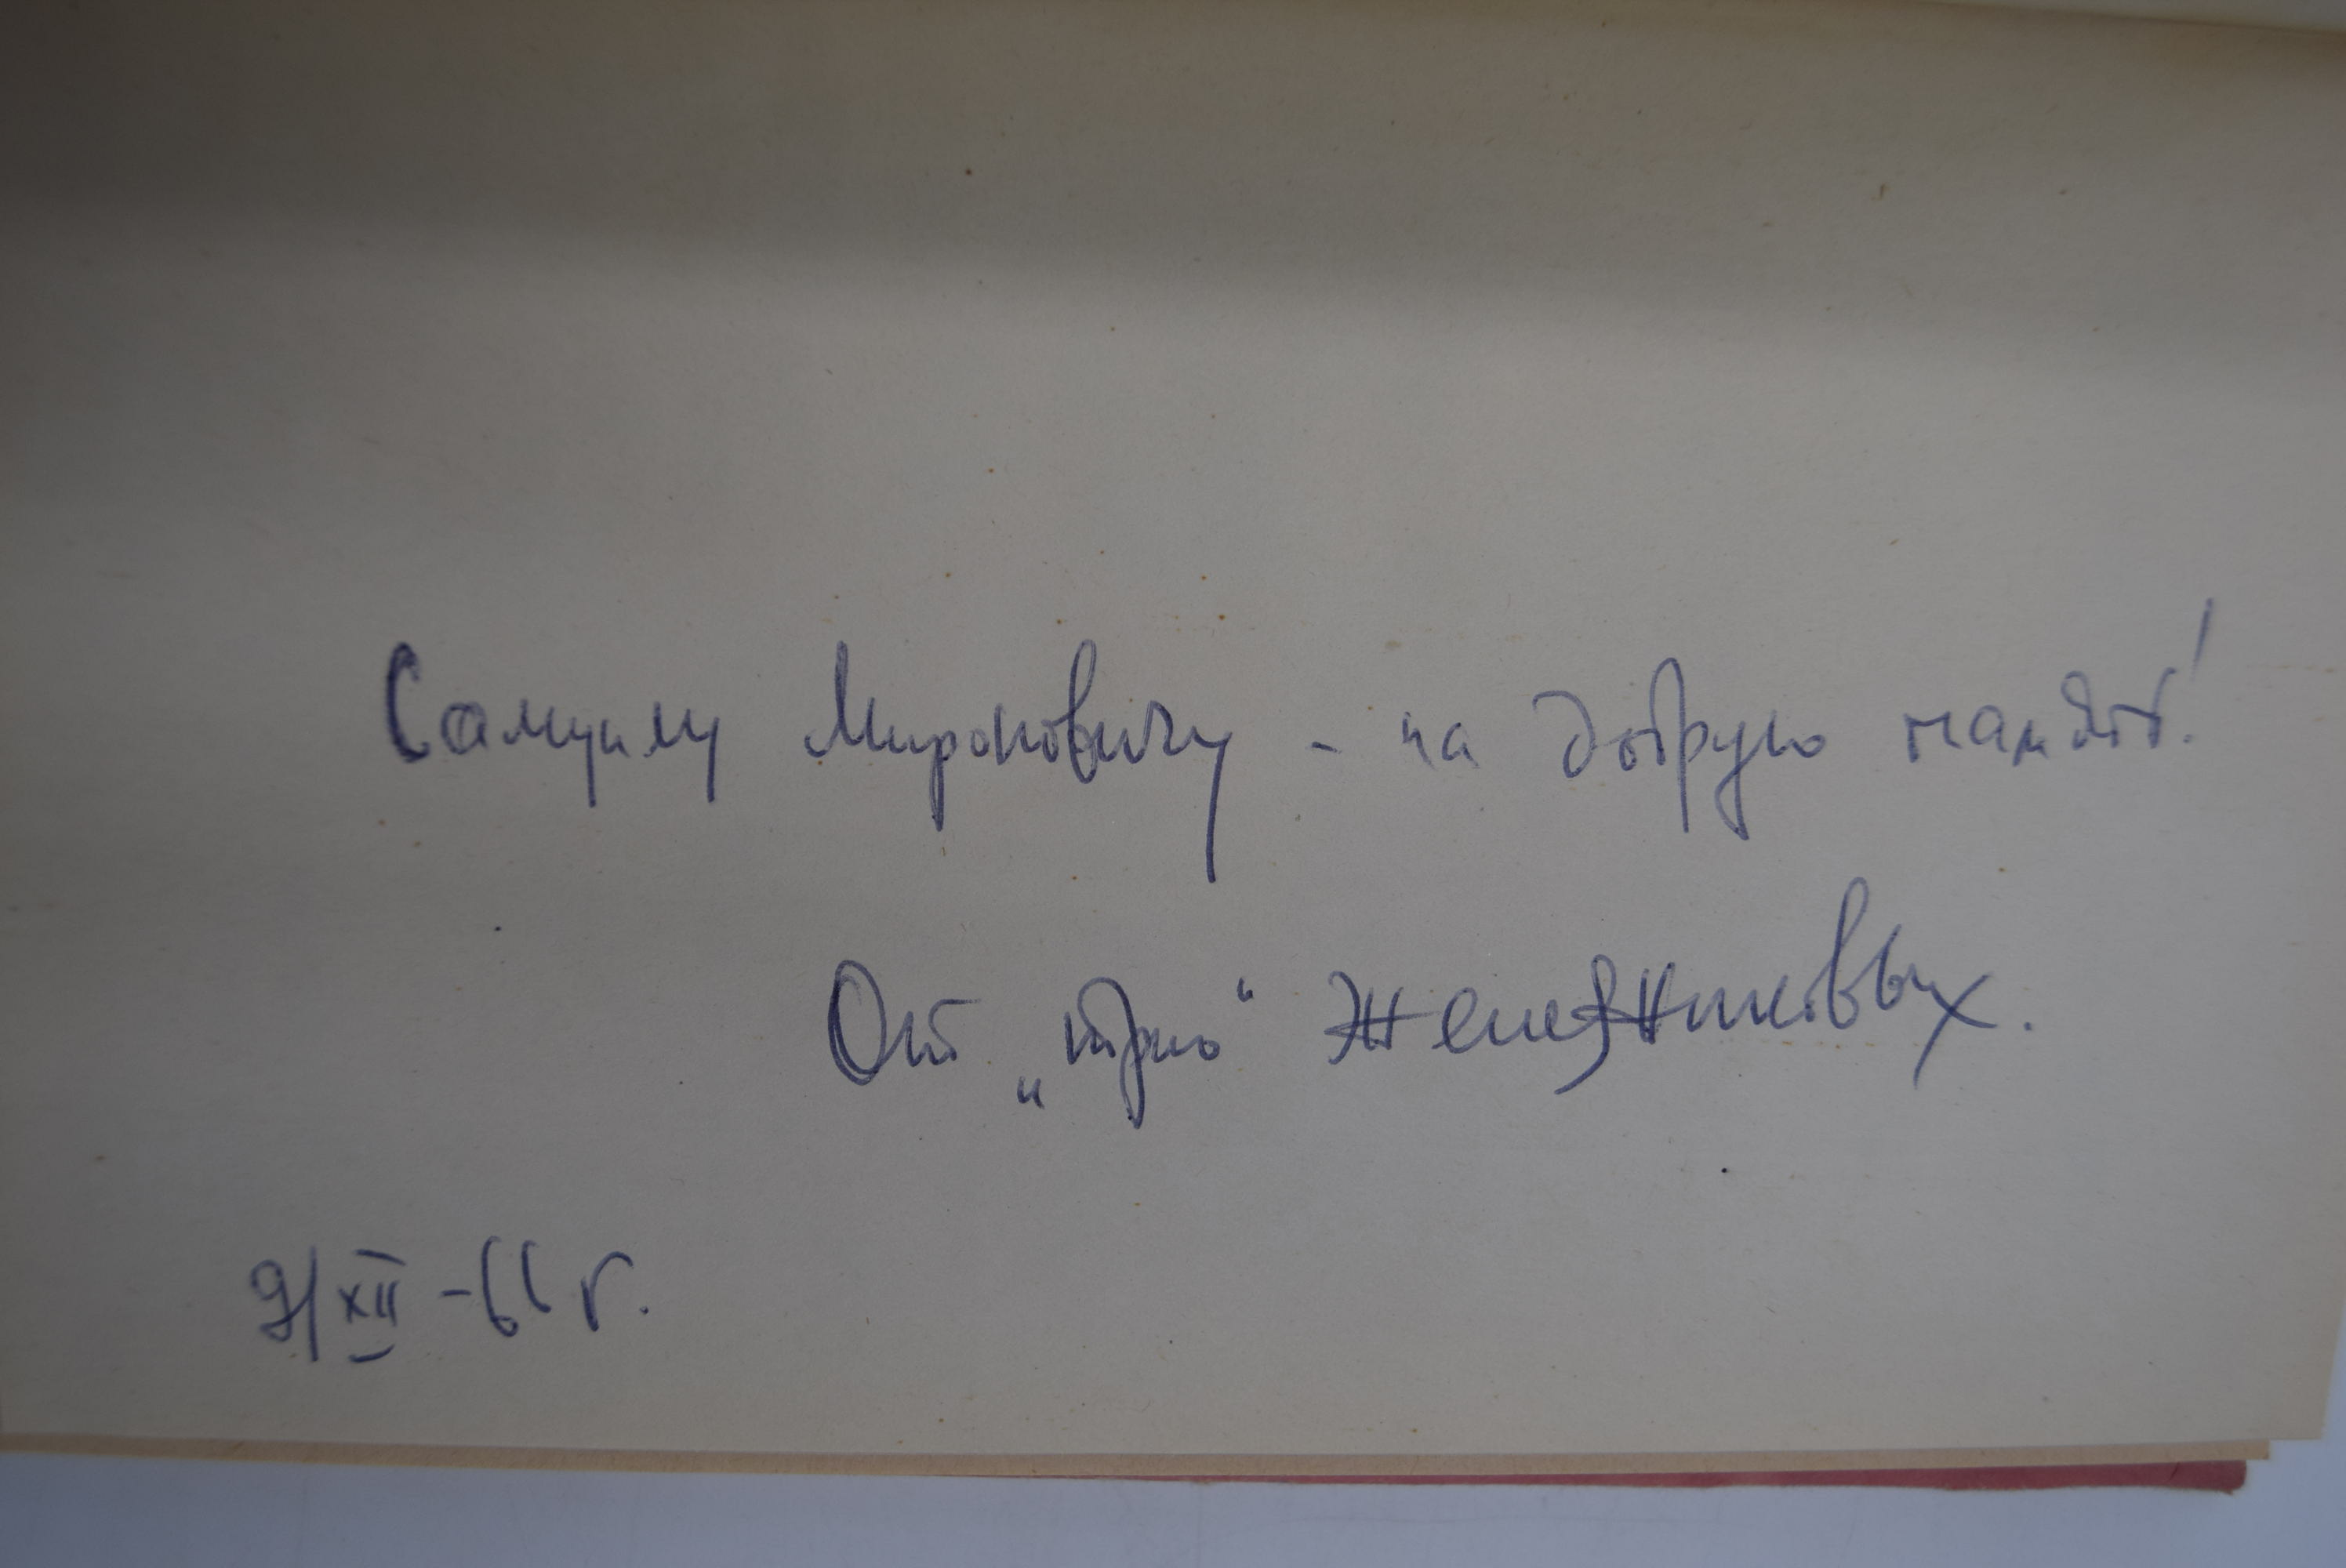 Самуилу Мироновичу - на добрую память!
От „трио“ Железниковых.
9/XII - 66 г.